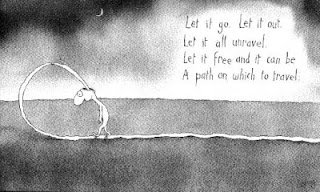 Let it go. Let it out.
Let it all unravel.
Let it free and it can be
A path on which to travel.